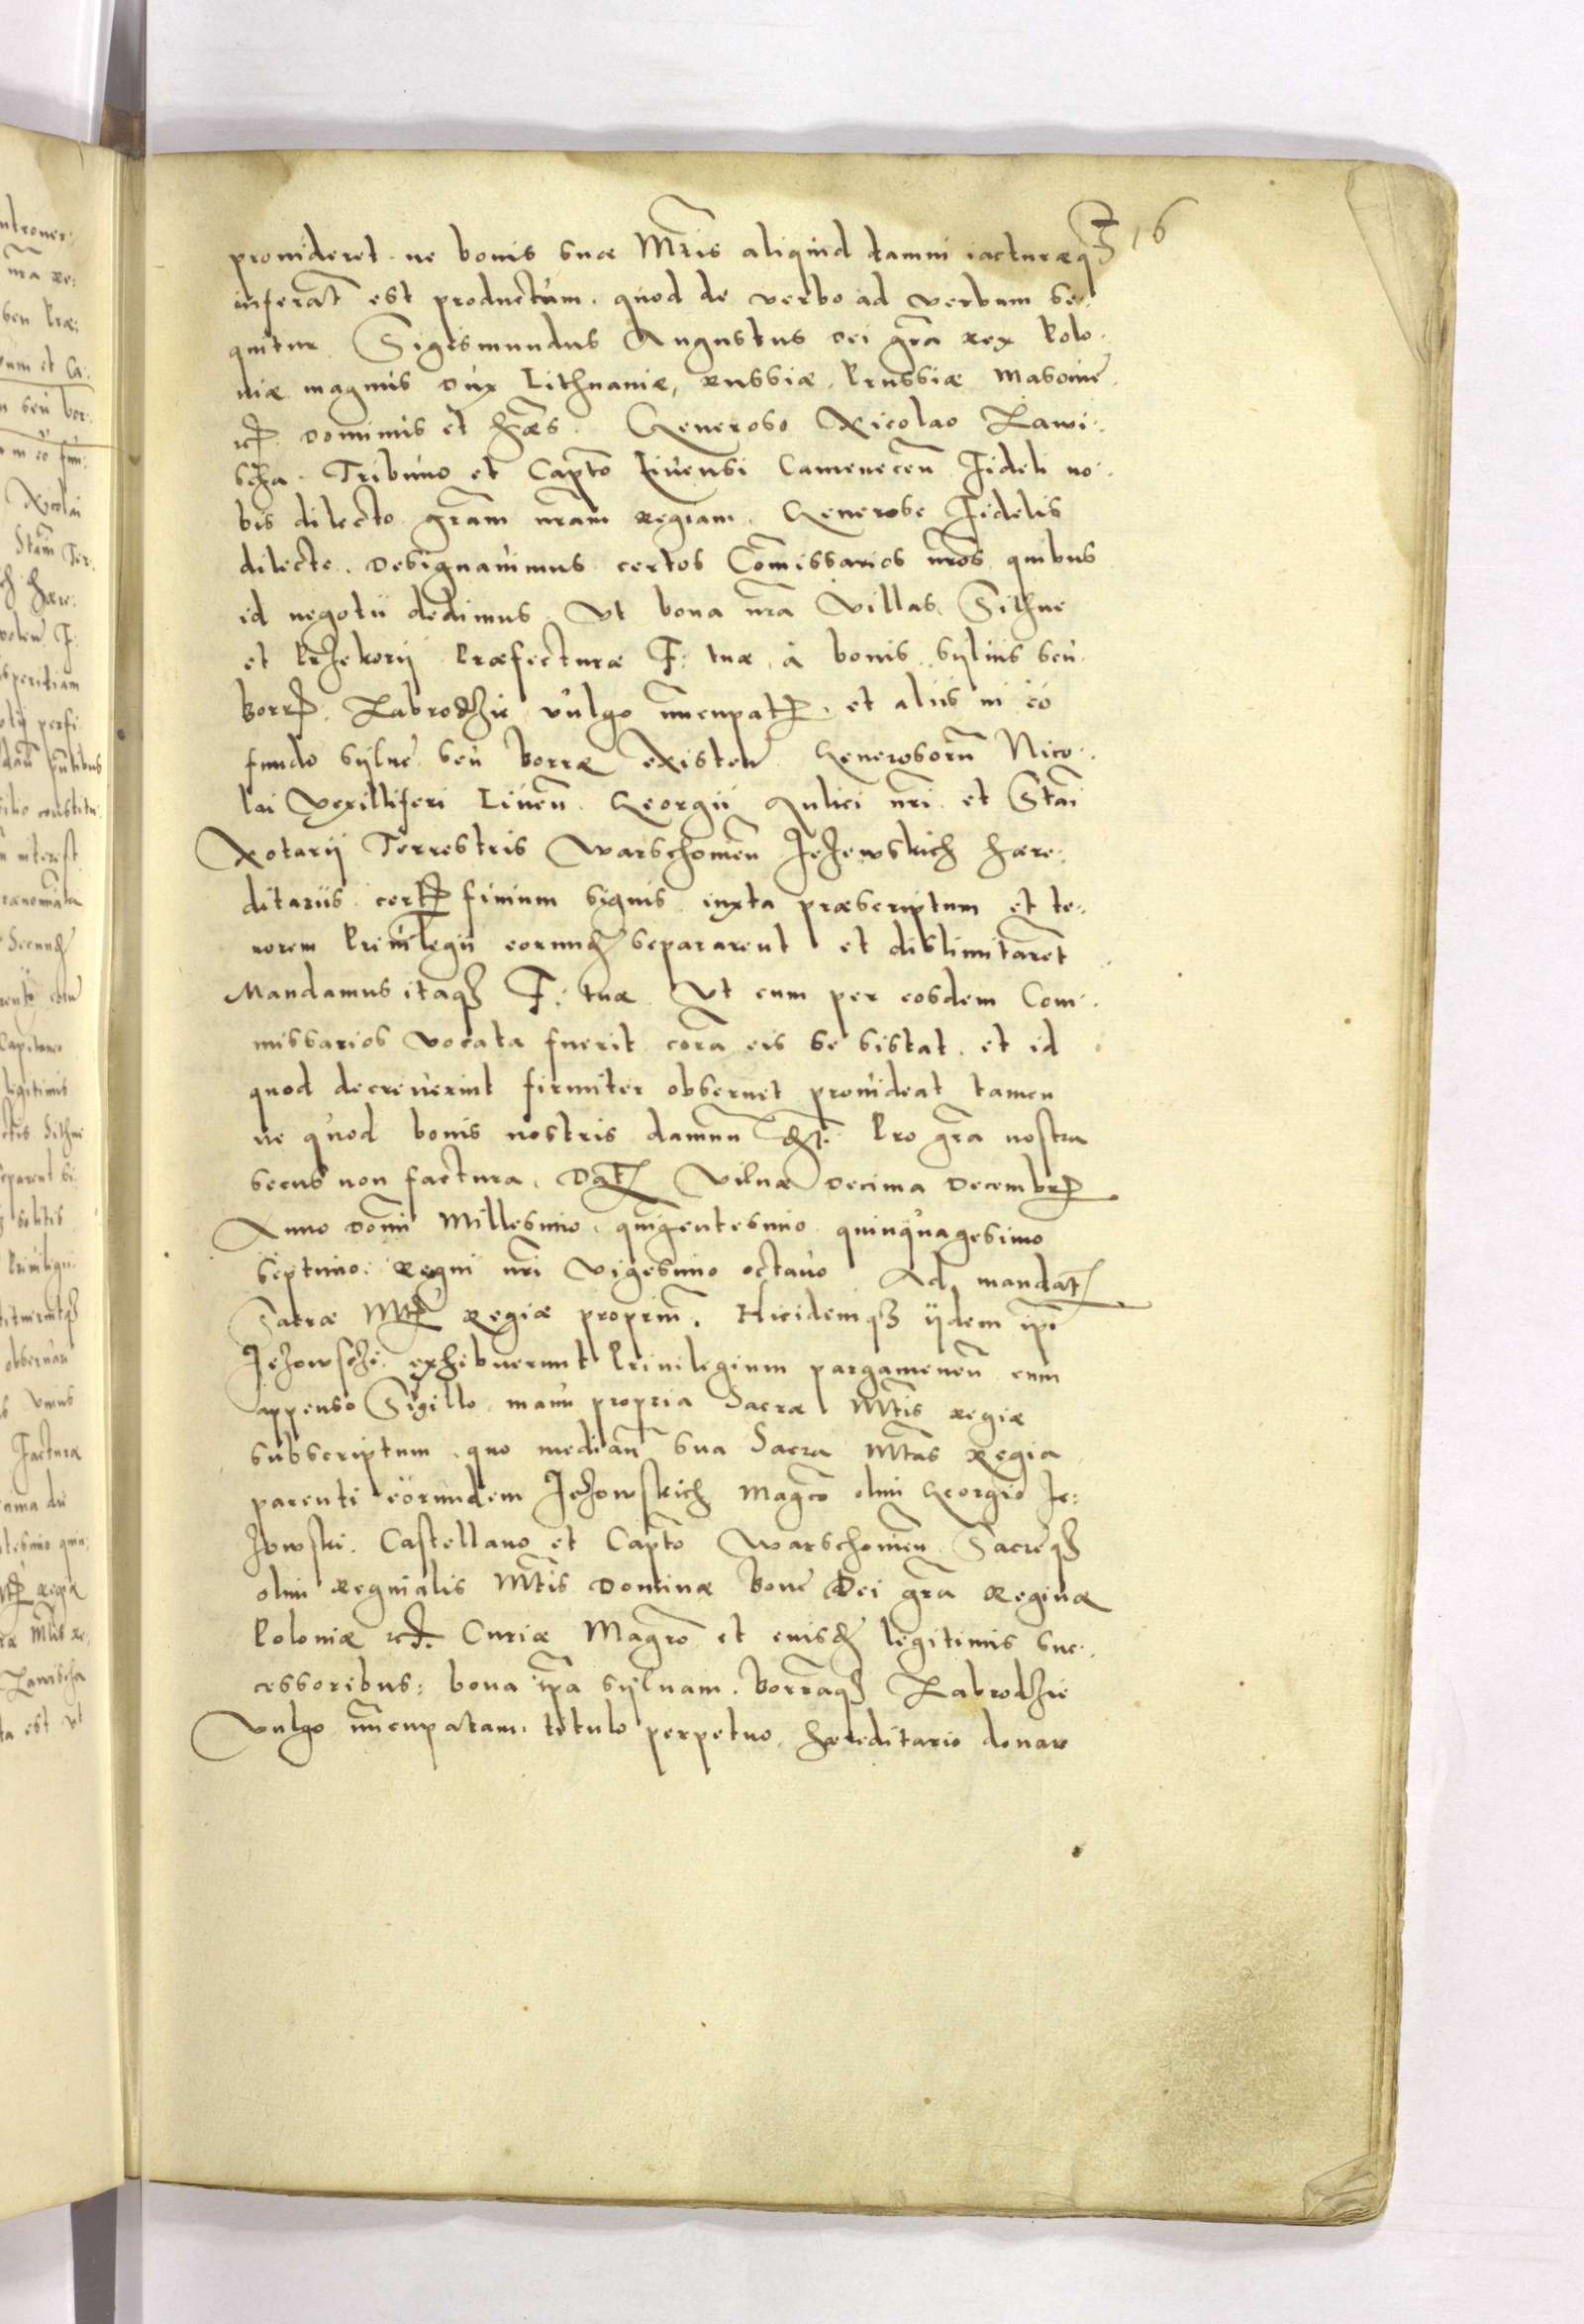 16
prouideret ne bonis suæ Mtis aliquid damni iacturæq3
inferat est productum quod de verbo ad verbum se:
quitur Sigismundus Augustus Dei gra rex Polo:
niæ magnus Dux Lithuaniæ, Russiæ, Prussiæ Masouie
etc Dominus et hæs. Generoso Nicolao Zawi:
scha Tribuno et Capto Liuensi Camenecen Fideli no:
bis dilecto gram nram Regiam. Generose Fidelis
dilecte. Designauimus certos Comissarios nros quibus
id negotii dedimus Vt bona nra Villas Sithne
et Præfecturæ F: tuæ à bonis syluis seu
Zabrodzie vulgo nuncupat et aliis in eo
fundo sylue seu borræ existen Generosoru Nico:
lai Vexilliferi Liuen Georgii Aulici nri et Stai
Notarii Terrestris Warschouien Jezewskich hære:
ditariis cert finium signis iuxta præscriptum et te:
norem Priuilegii eorund separarent et dislimitaret
Mandamus itaq3 F: tuæ Vt cum per eosdem Com:
missarios vocata fuerit cora eis se sistat et id
quod decreuerint firmiter obseruet prouideat tamen
ne quod bonis nostris damnu Pro gra nostra
secus non factura. Dat Vilnæ Decima Decembr
Anno Domi Millesimo quingentesimo quinquagesimo
septimo. Regni nri Vigesimo octauo Ad mandat
Sacræ Mt Regiæ propriu. Ibidemq3 iidem ipi
exhibuerunt Priuilegium pargamenen cum
appenso Sigillo manu propria Sacræ Mtis Regiæ
subscriptum quo median sua Sacra Mtas Regia
parenti eorundem Jezowskich Magco olim Georgio Je:
zowski Castellano et Capto Warschouien Sacreq3
olim Reginalis Mtis Dominæ Bone Dei gra Reginæ
Poloniæ etc. Curiæ Magro et eiusd legitimis suc:
cessoribus: bona ipa syluam. borraq3 Zabrodzie
Vulgo nuncupatam titulo perpetuo hæreditario donare